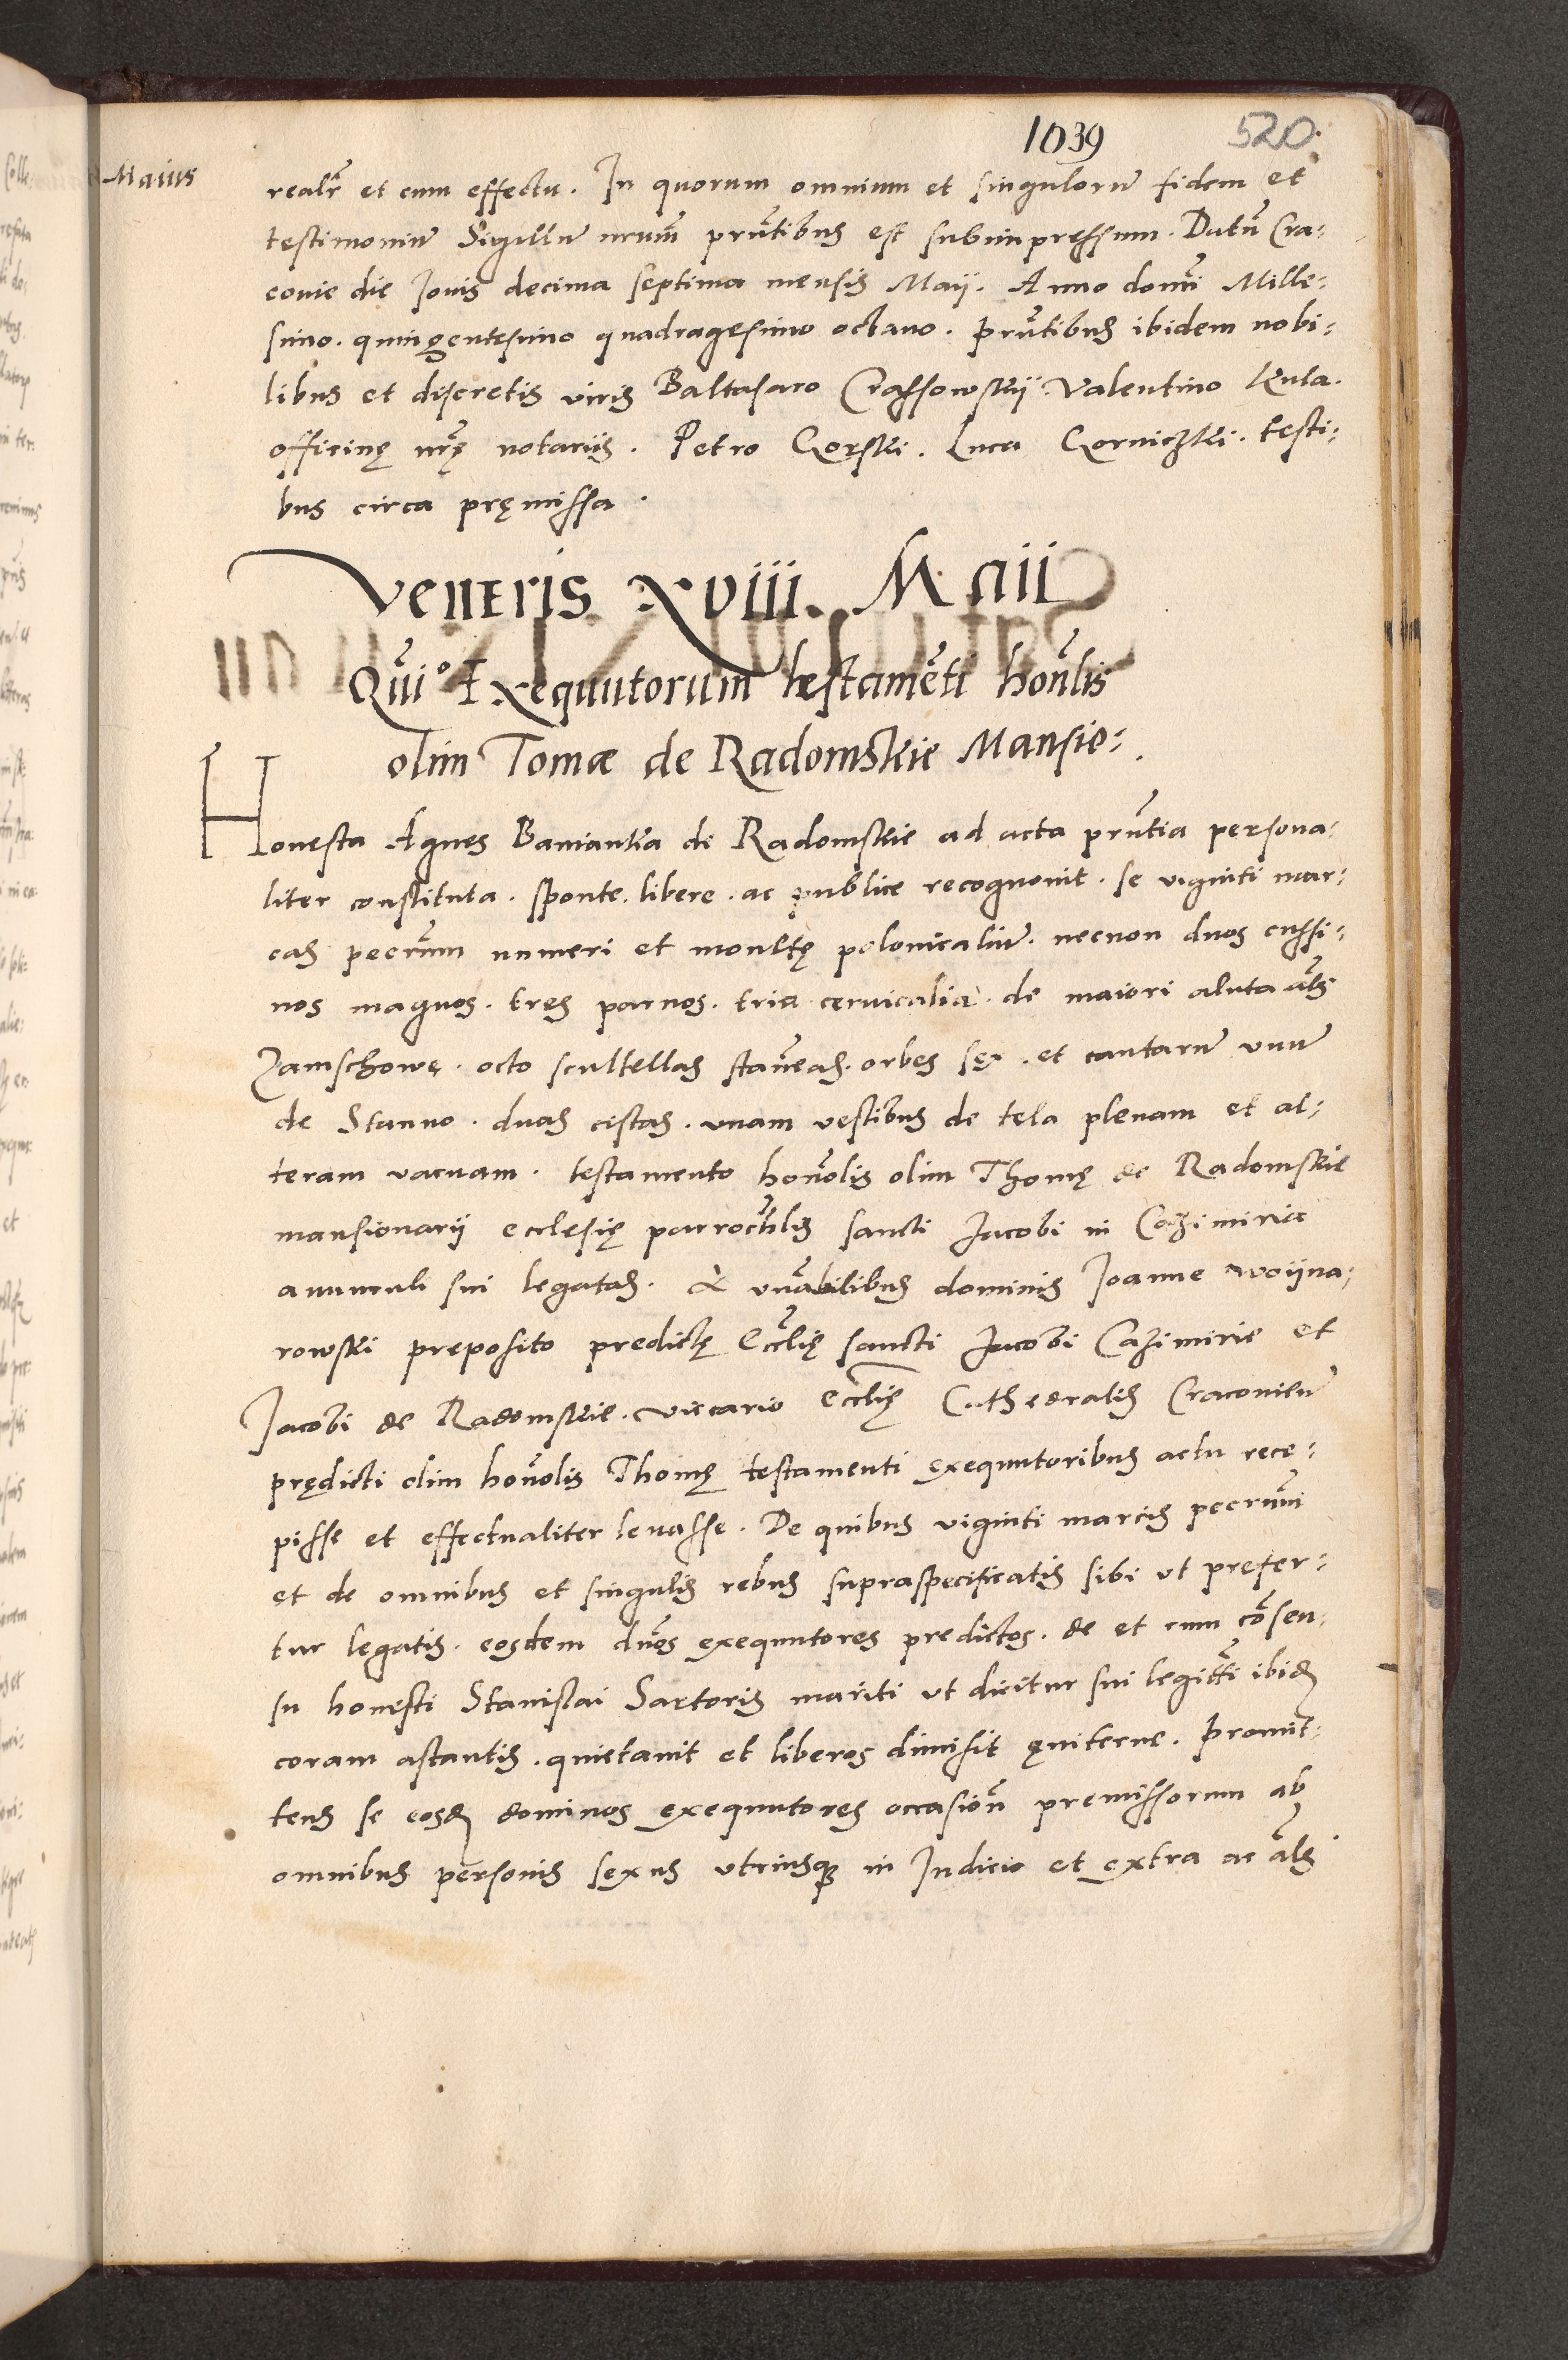 1039 520.
Maius
realr̃ et cum effectu. In quorum omnium et singulorum̃ fidem et
testimonium̃ Sigillum̃ nrum̃ prñtibus est subimpressum. Datum̃ Cra:
couie die Jouis decima septima mensis Maij. Anno domĩ Mille:
simo. quingentesimo quadragesimo octauo. Prñtibus ibidem nobi:
libus et discretis viris Baltasaro Crassowskij. Valentino Kula.
officinę nrẽ notariis. Petro Gorski. Luca Gornichki. testi:
bus circa pręmissa.
Veneris XVIII. Maii
Qũi° Exequutorum testamẽti honl̃is
olim Tomæ de Radomskie Mansio:
Honesta Agnes de Radomskie ad acta prñtia persona:
liter constituta. sponte. libere. ac publice recognouit. se viginti mar:
cas pecũum numeri et monetę polonicaliũ. necnon duos cussi:
nos magnos. tres paruos. tria ceruicalia. de maiori aluta al̃s
Zamschowe. octo scultellas stañeas. orbes sex. et cantarum̃ vnum̃
de Stanno. duas cistas. vnam vestibus de tela plenam et al:
teram vacuam. testamento honõlis olim Thomę de Radomskie
mansionarij ecclesię parrochl̃is sancti Jacobi in Cazimiria
auunculi sui legatas. A vnãbilibus dominis Joanne Woijna:
rowski preposito predictę Ecclię sancti Jacobi Cazimirie et
Jacobi de Radomskie. vicario Ecclię Cathedralis Cracouien̄
prędicti olim honõlis Thomę testamenti exequutoribus actu rece:
pisse et effectualiter leuasse. De quibus viginti marcis pecũni
et de omnibus et singulis rebus supraspecificatis sibi vt prefer:
tur legatis. eosdem dños exequutores predictos. de et cum cõsen:
su honesti Stanislai Sartoris mariti vt dicitur sui legittĩ ibidẽ
coram astantis. quietauit et liberos dimisit ęuiterne. Promit:
tens se eosdẽ dominos exequutores occasioñ premissorum ab
omnibus personis sexus vtriusq3 in Judicio et extra ac al̃s